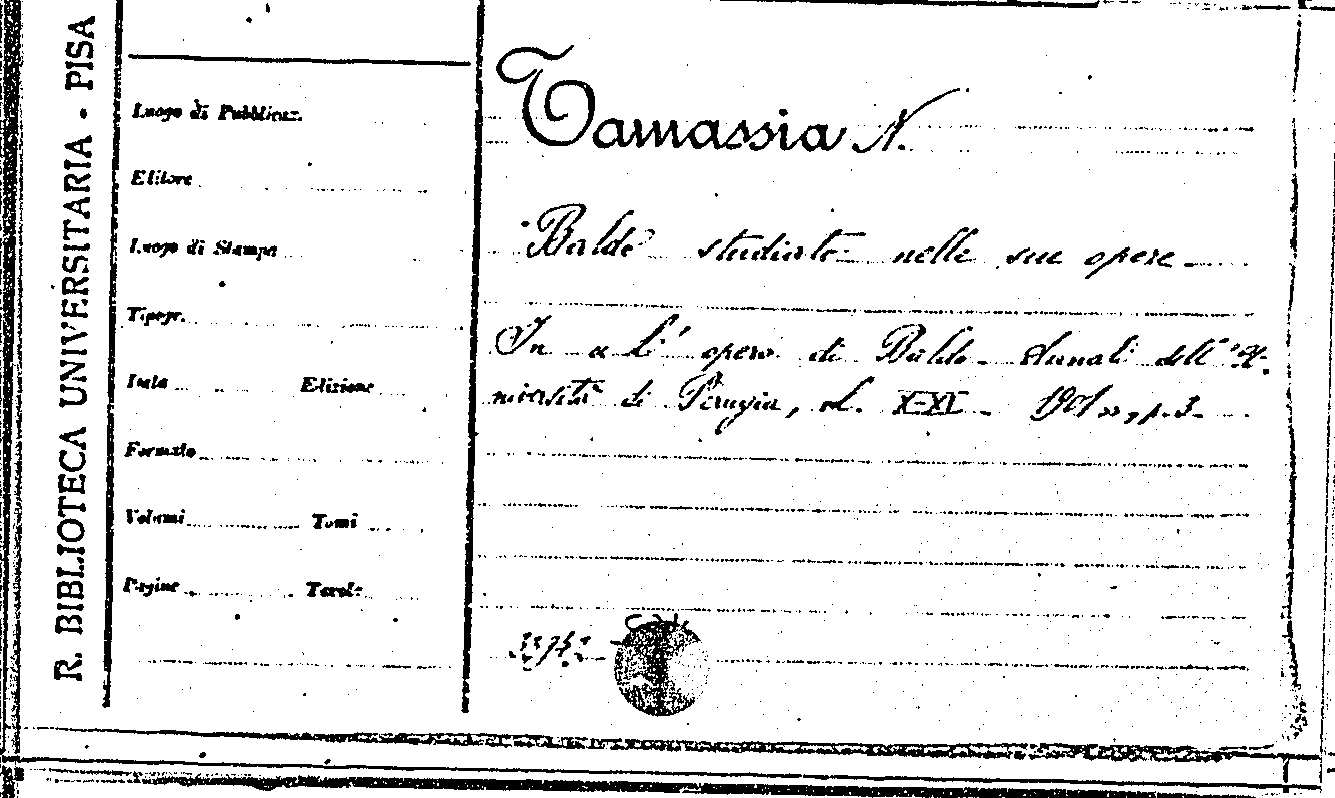 R. BIBLIOTECA UNIVERSITARIA - PISA
Luogo di Pubblicaz.
Editore
Luogo di Stampa
Tipogr.
Data Edizione
Formato
Volumi Tomi
Pagine Tavole
Tamassia N.
Baldo studiato nelle sue opere
In "L' opera di Baldo - Annali dell' "U-
niversità di Perugia, vol. X-XI - 1901", p. 3-